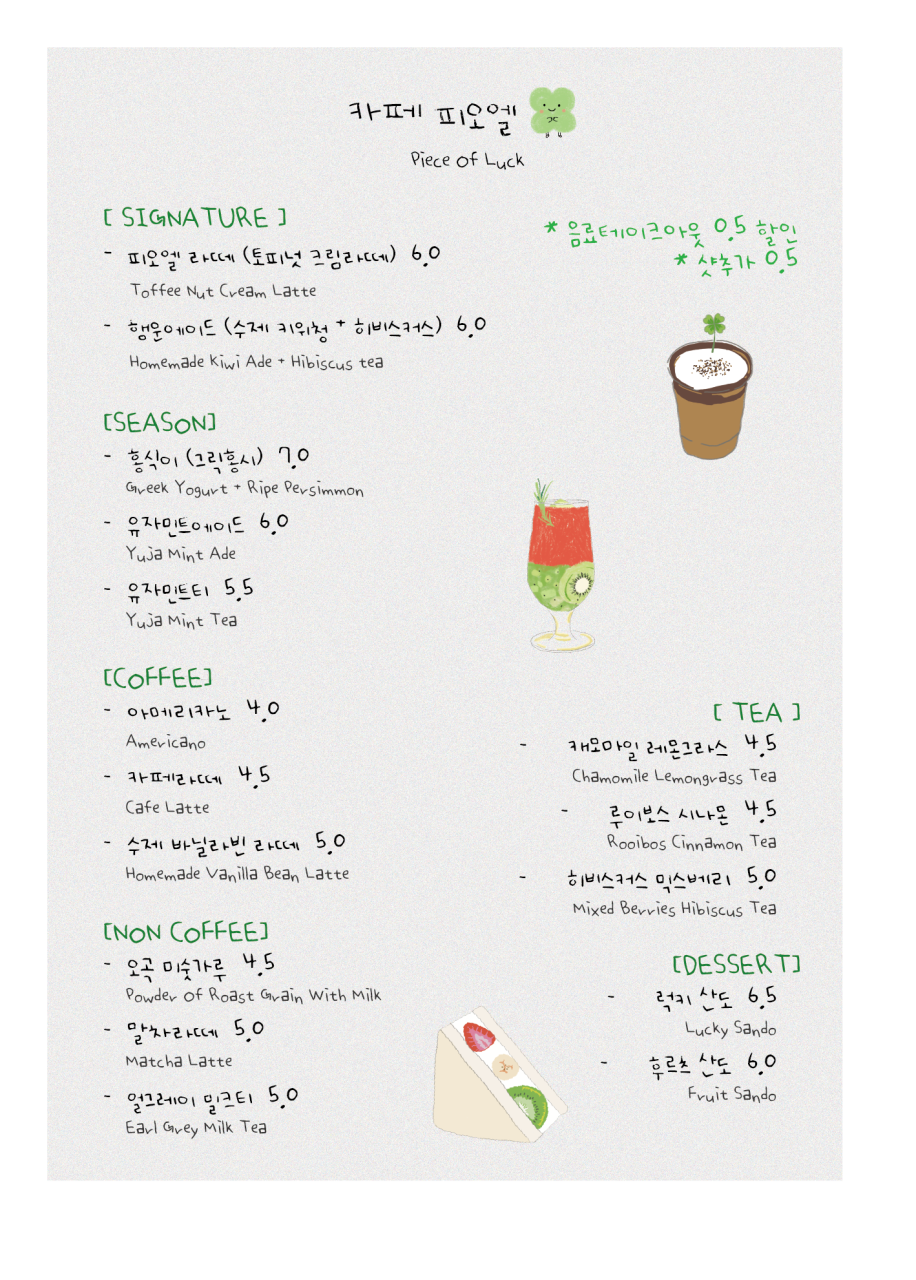 카페 피오엘
Piece of Luck
[ SIGNATURE ]
- 피오엘 라떼 (토피넛 크림라떼) 6.0
Toffee Nut Cream Latte
- 행운에이드 (수제 키위청 + 히비스커스) 6.0
Homemade Kiwi Ade + Hibiscus tea
* 음료테이크아웃 0.5 할인
* 샷추가 0.5
[SEASON]
- 홍식이 (그릭홍시) 7.0
Greek Yogurt + Ripe Persimmon
- 유자민트에이드 6.0
Yuja Mint Ade
- 유자민트티 5.5
Yuja Mint Tea
[COFFEE]
- 아메리카노 4.0
Americano
- 카페라떼 4.5
Cafe Latte
- 수제 바닐라빈 라떼 5.0
Homemade Vanilla Bean Latte
[NON COFFEE]
- 오곡 미숫가루 4.5
Powder of Roast Grain With Milk
- 말차라떼 5.0
Matcha Latte
- 얼그레이 밀크티 5.0
Earl Grey Milk Tea
[ TEA ]
- 캐모마일 레몬그라스 4.5
Chamomile Lemongrass Tea
- 루이보스 시나몬 4.5
Rooibos Cinnamon Tea
- 히비스커스 믹스베리 5.0
Mixed Berries Hibiscus Tea
[DESSERT]
- 럭키 산도 6.5
Lucky Sando
- 후르츠 산도 6.0
Fruit Sando